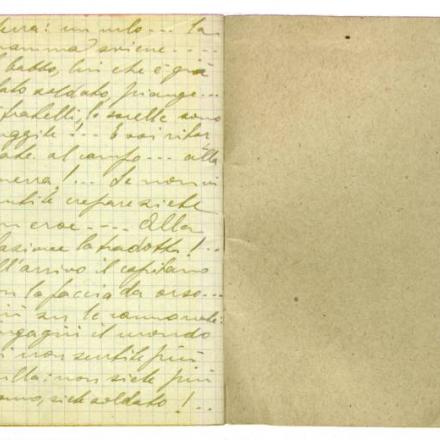 terra: un urlo... La
mamma sviene....
l batto, lui che è già
stato soldato, piange...
fratelli, le sorelle sono
fuggite!... E voi ritor
nate al campo... alla
guerra!... Se non vi
sentite crepare siete
un eroe.... Alla
stazione la tradotta!...
all'arrivo il capitano
con la faccia da orso...
il mondo
non sentite più
nulla: non siete più
uomo, siete soldato!...